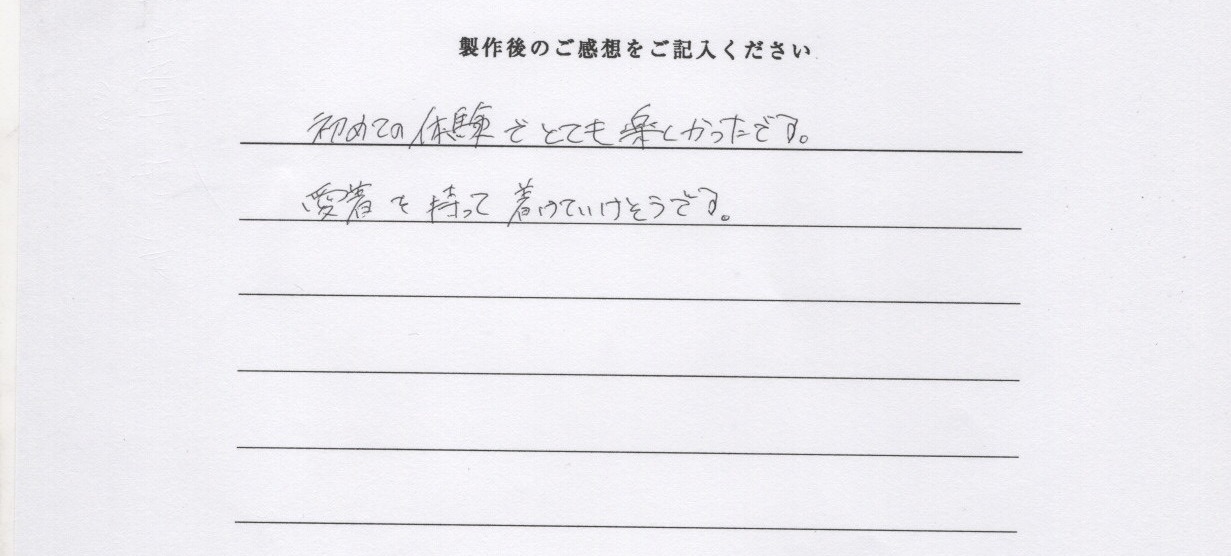 製作後のご感想をご記入ください
初めての体験でとても楽しかったです。
愛着を持って着けていけそうです。